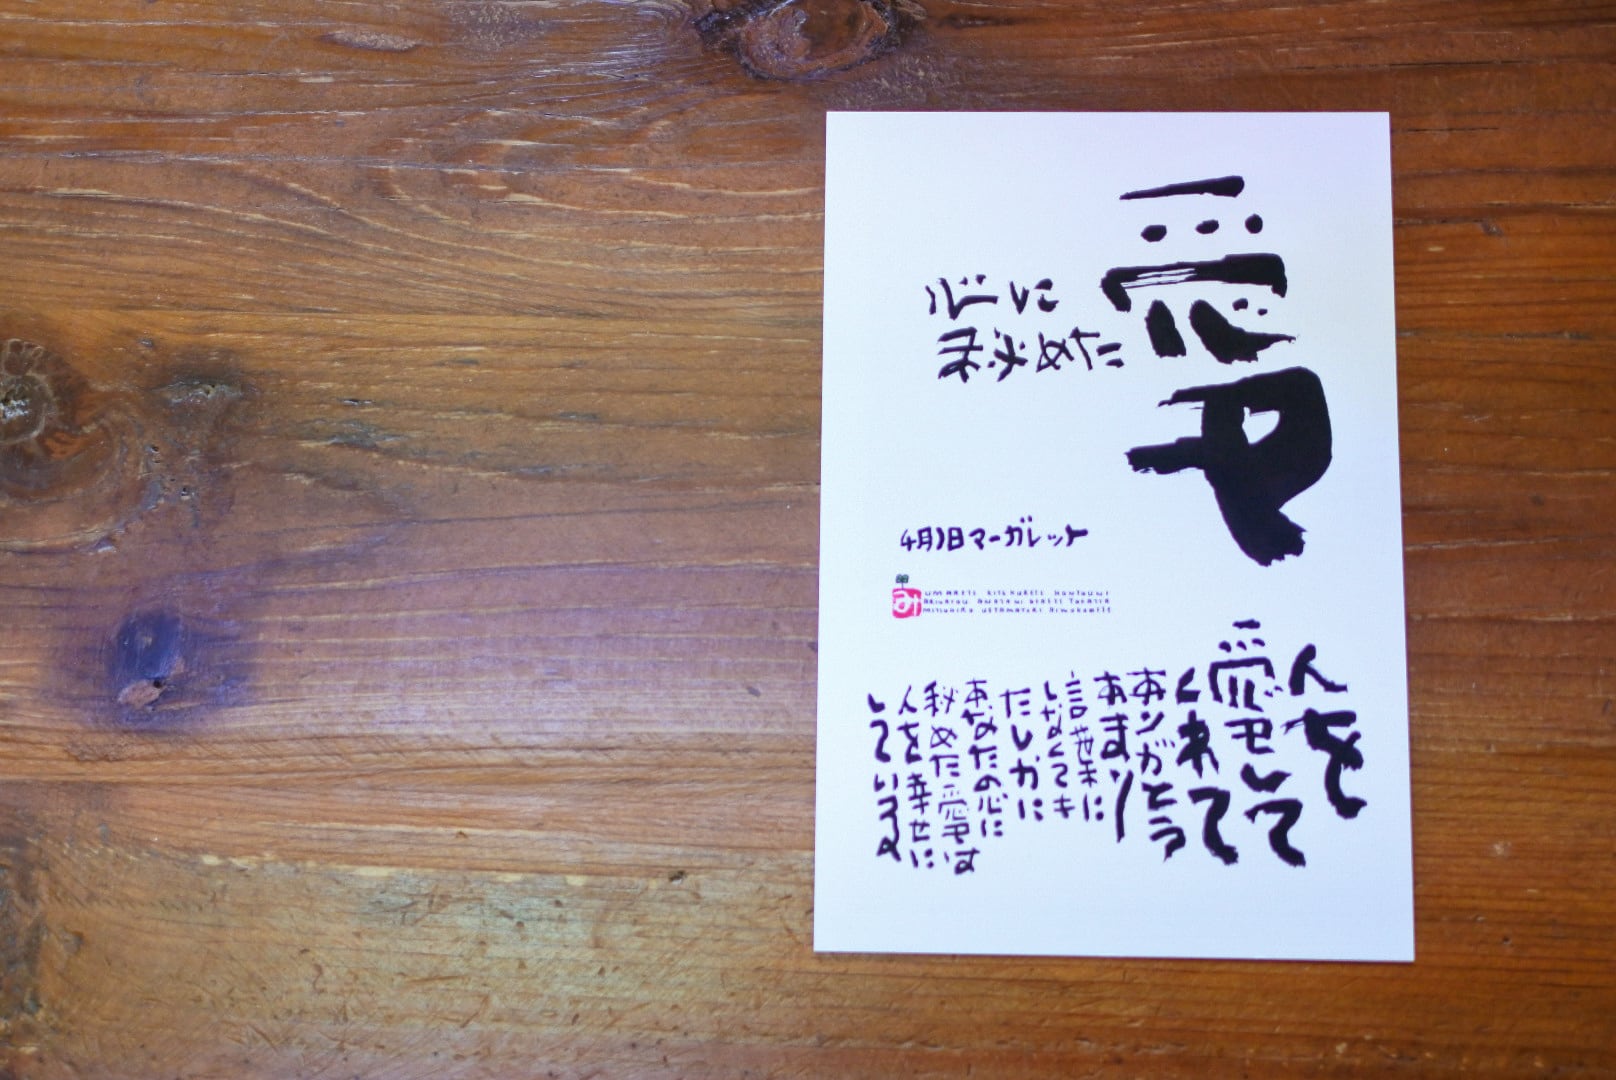 心に
秘めた
愛
4月1日マーガレット
み
人を
愛して
くれて
ありがとう
あまり
言葉に
しなくても
たしかに
あなたの心に
秘めた愛は
人を幸せに
している